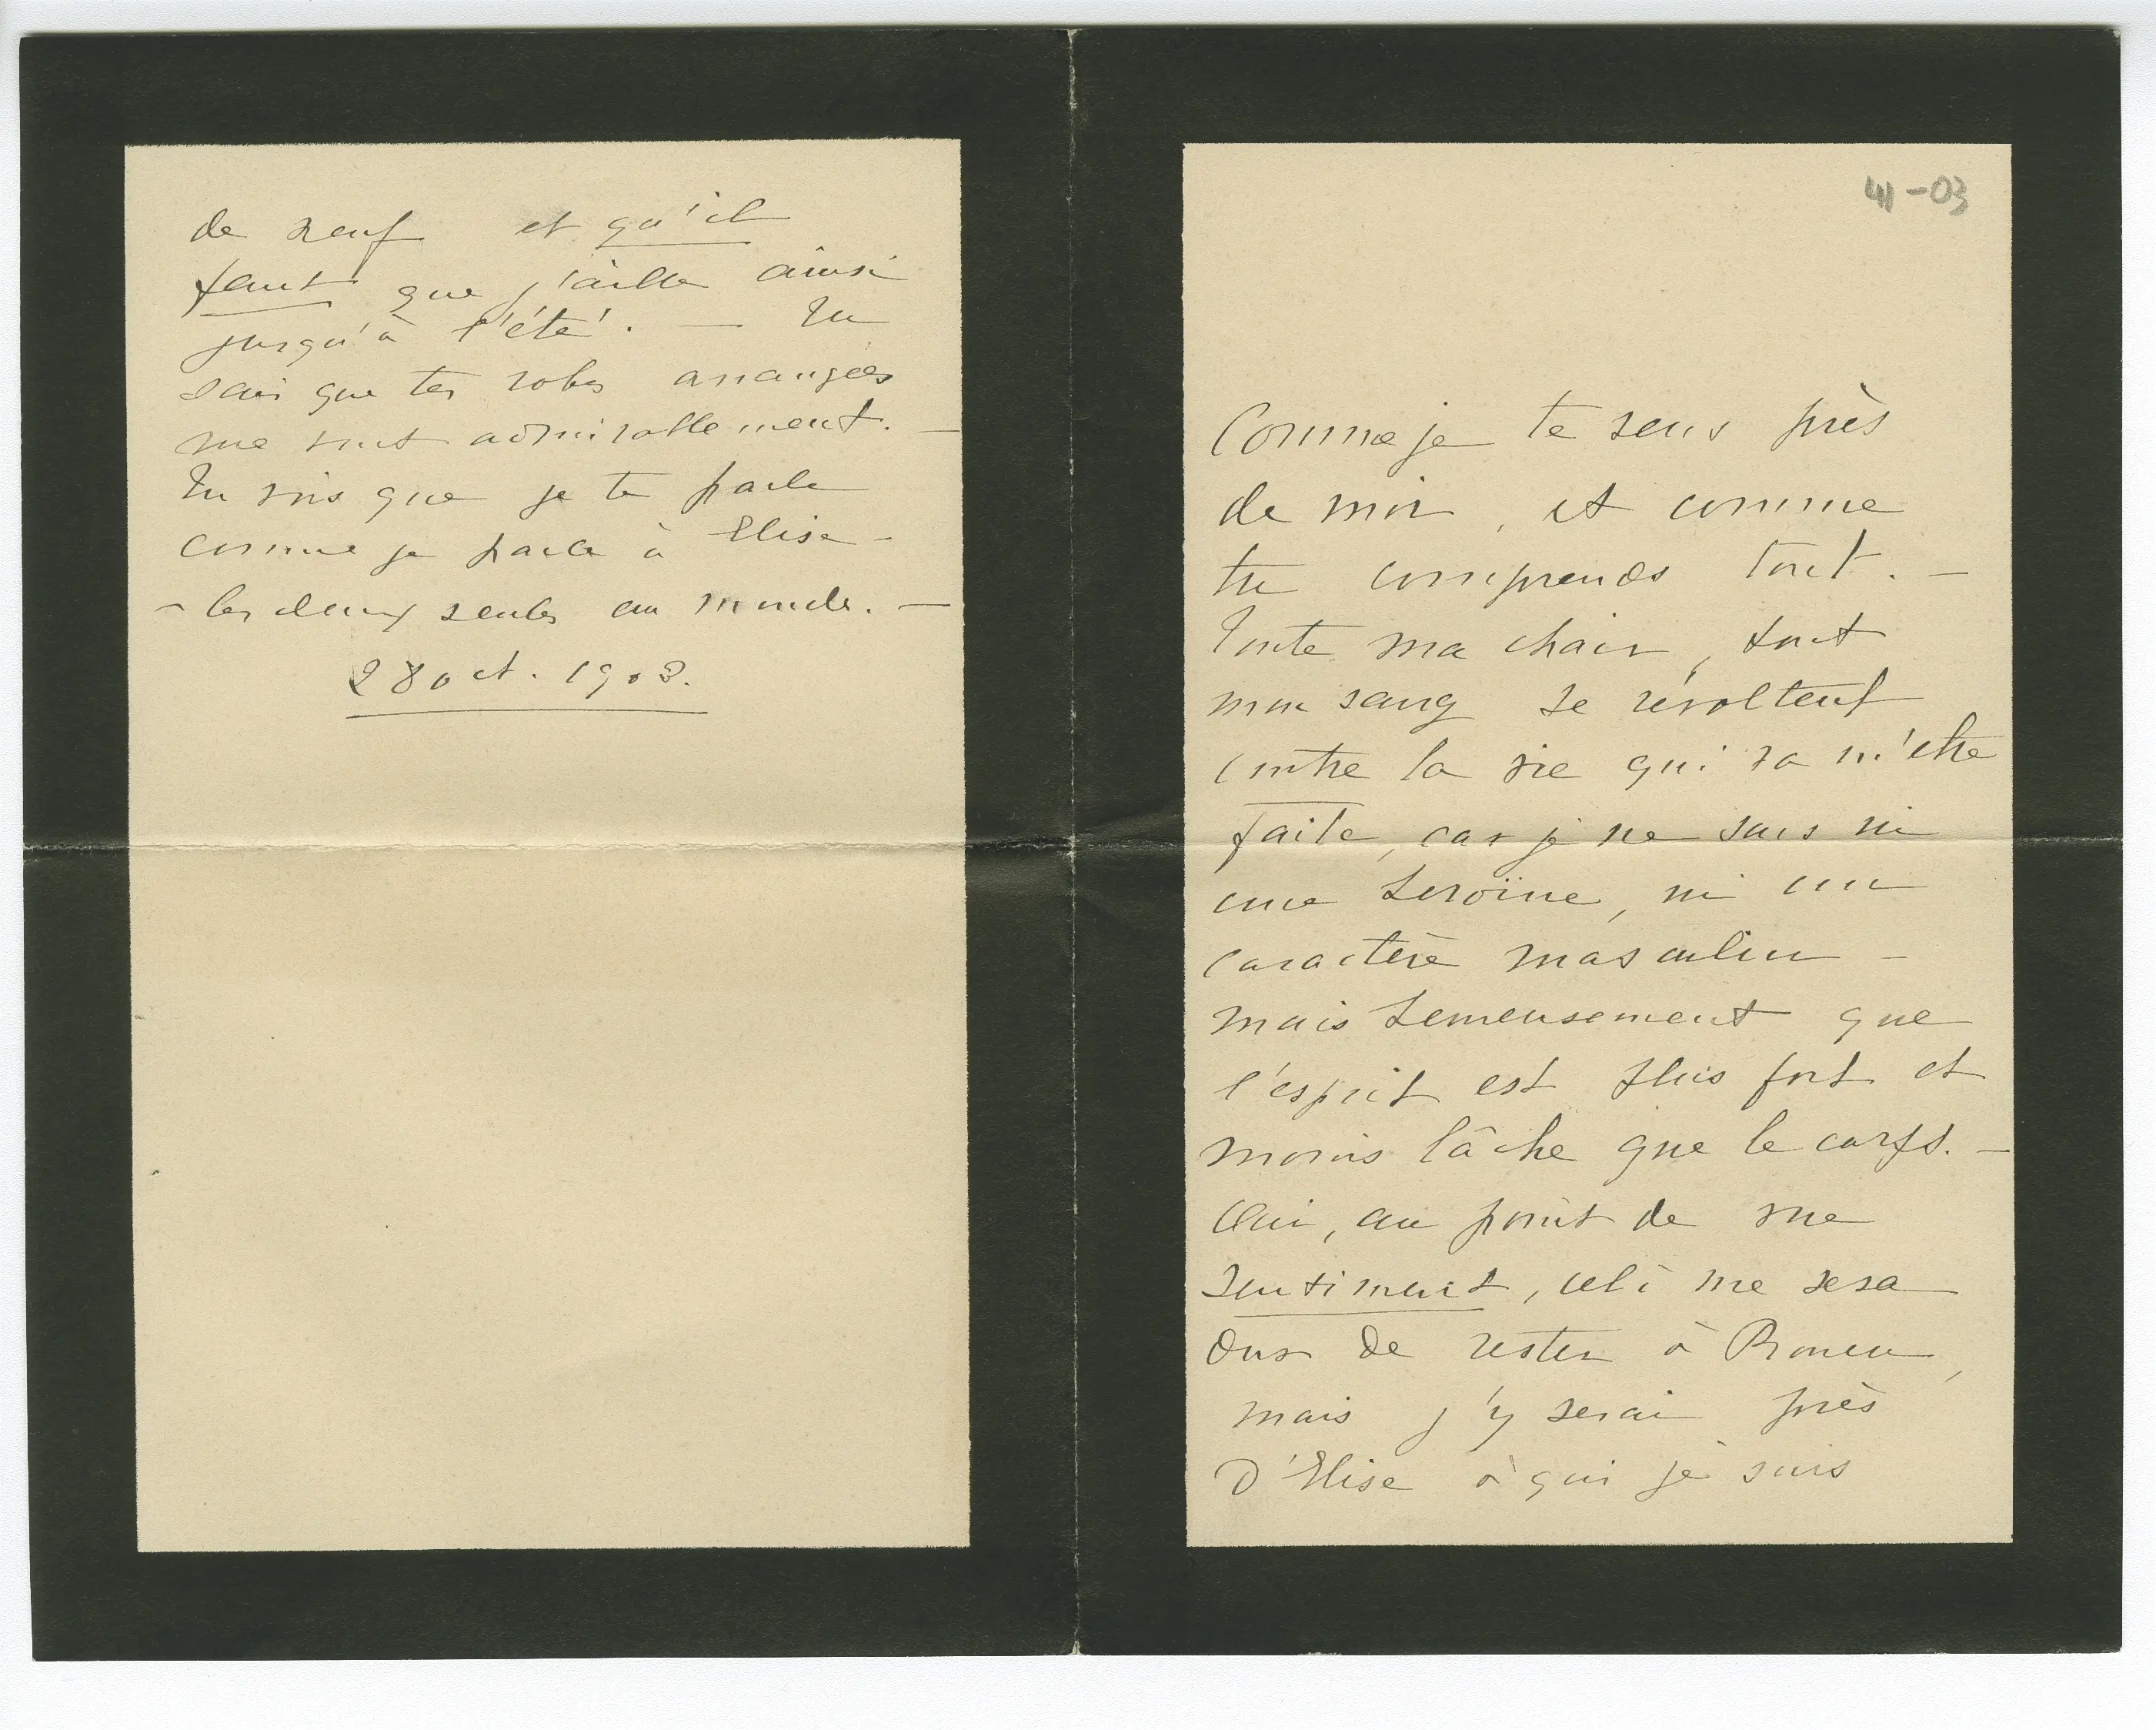 de neuf et qu'il
faut que j'aille ainsi
jusqu'à l'été. — Tu
sais que tes robes arrangées
me vont admirablement. —
Tu vois que je te parle
comme je parle à Elise -
- les deux seules au monde. —
28 oct. 1903.
41-03
Comme je te sens près
de moi, et comme
tu comprends tout. —
Toute ma chair, tout
mon sang se révoltent
contre la vie qui va m'être
faite, car je ne suis ni
une heroïne, ni un
caractère masculin -
mais heureusement que
l'esprit est plus fort et
moins lâche que le corps. —
Oui, au point de vue
sentiment, cela me sera
dur de rester à Rouen,
mais j'y serai près
d'Elise à qui je suis